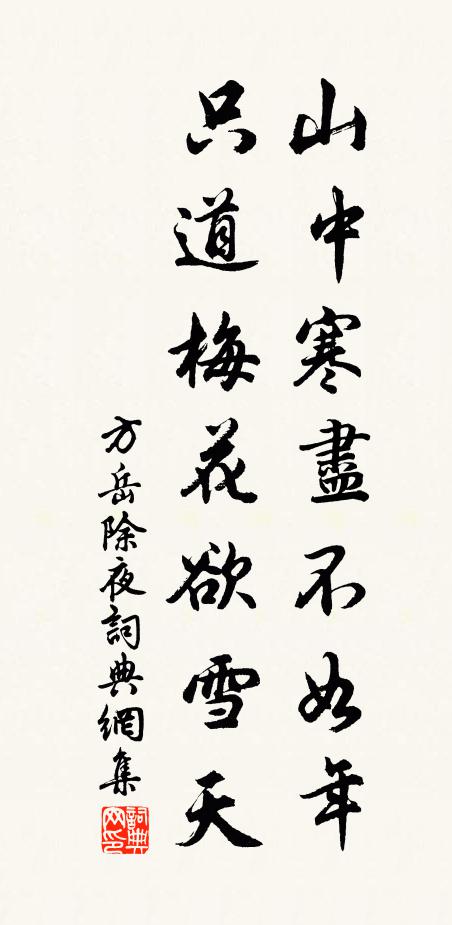 山中寒盡不如年
只道梅花欲雪天
方岳除夜詞典網集
詞典網印